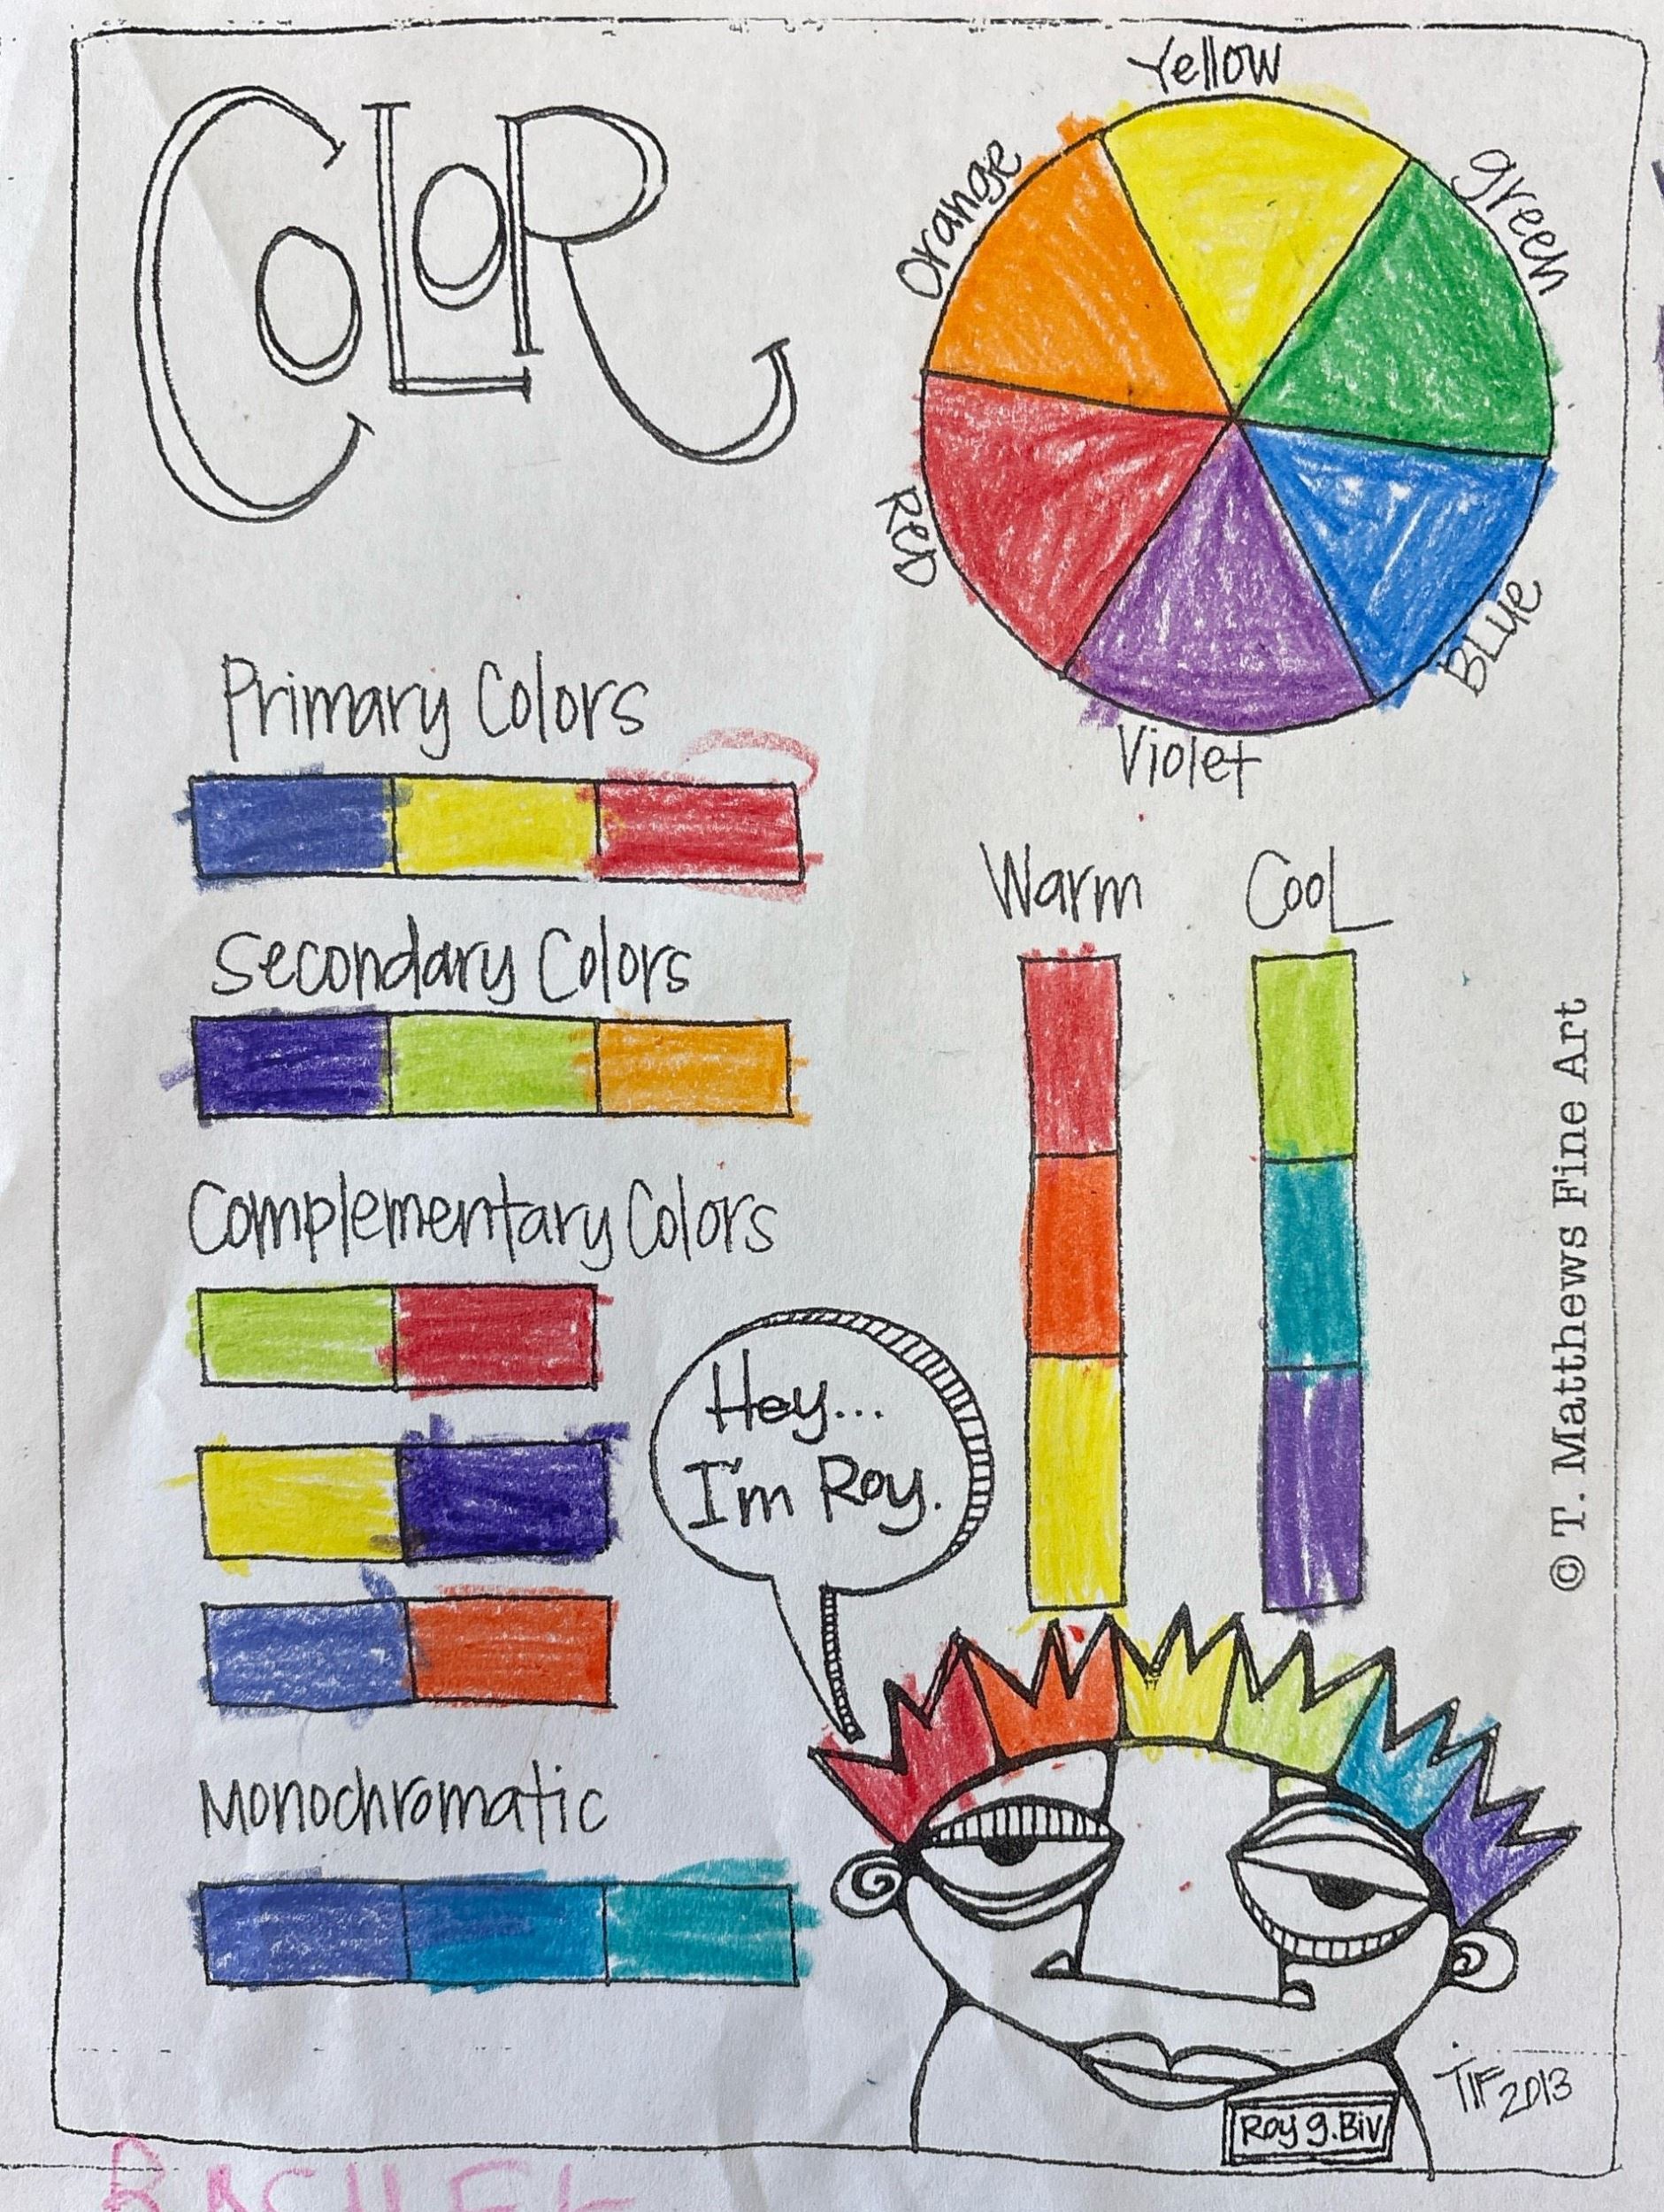 COLOR
Yellow
Orange
green
RED
BLUe
Violet
Primary Colors
Secondary Colors
Complementary Colors
Monochromatic
Warm
CooL
Hey...
I'm Roy.
© T. Matthews Fine Art
TIF 2013
Roy g. Biv